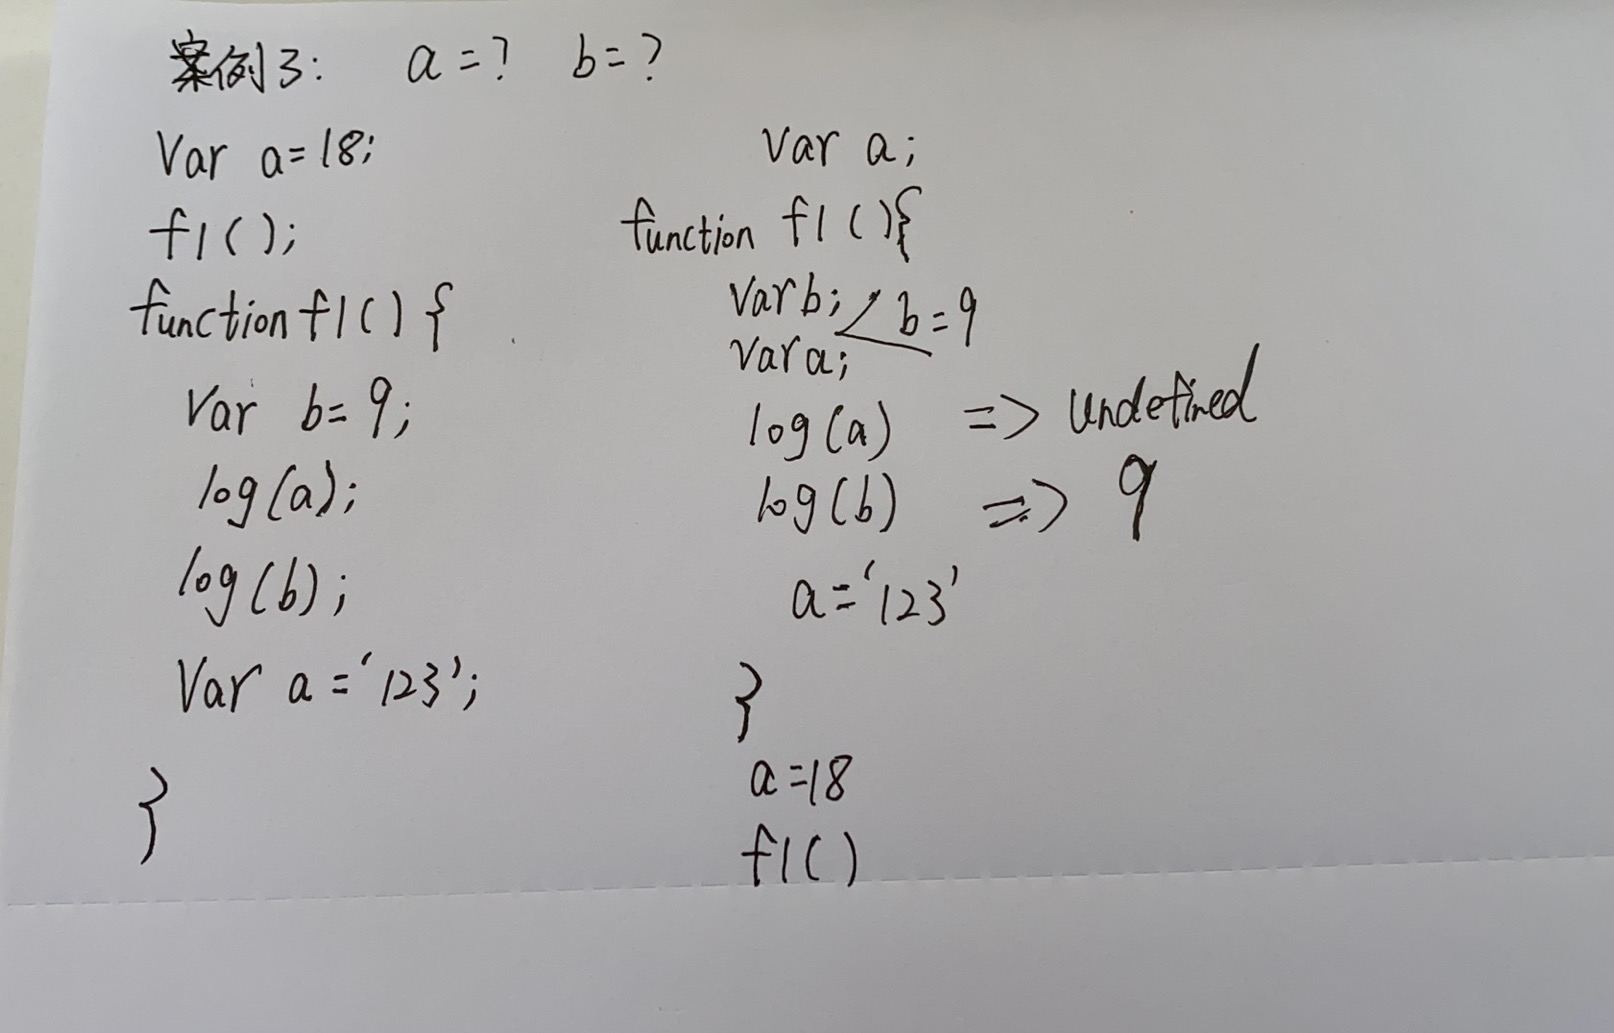 案例3: a=? b=?
Var a=18;
f1();
function f1() {
Var b=9;
log(a);
log(b);
Var a='123';
}
Var a;
function f1(){
Var b; b=9
Var a;
log(a) => undefined
log(b) => 9
a='123'
}
a=18
f1()